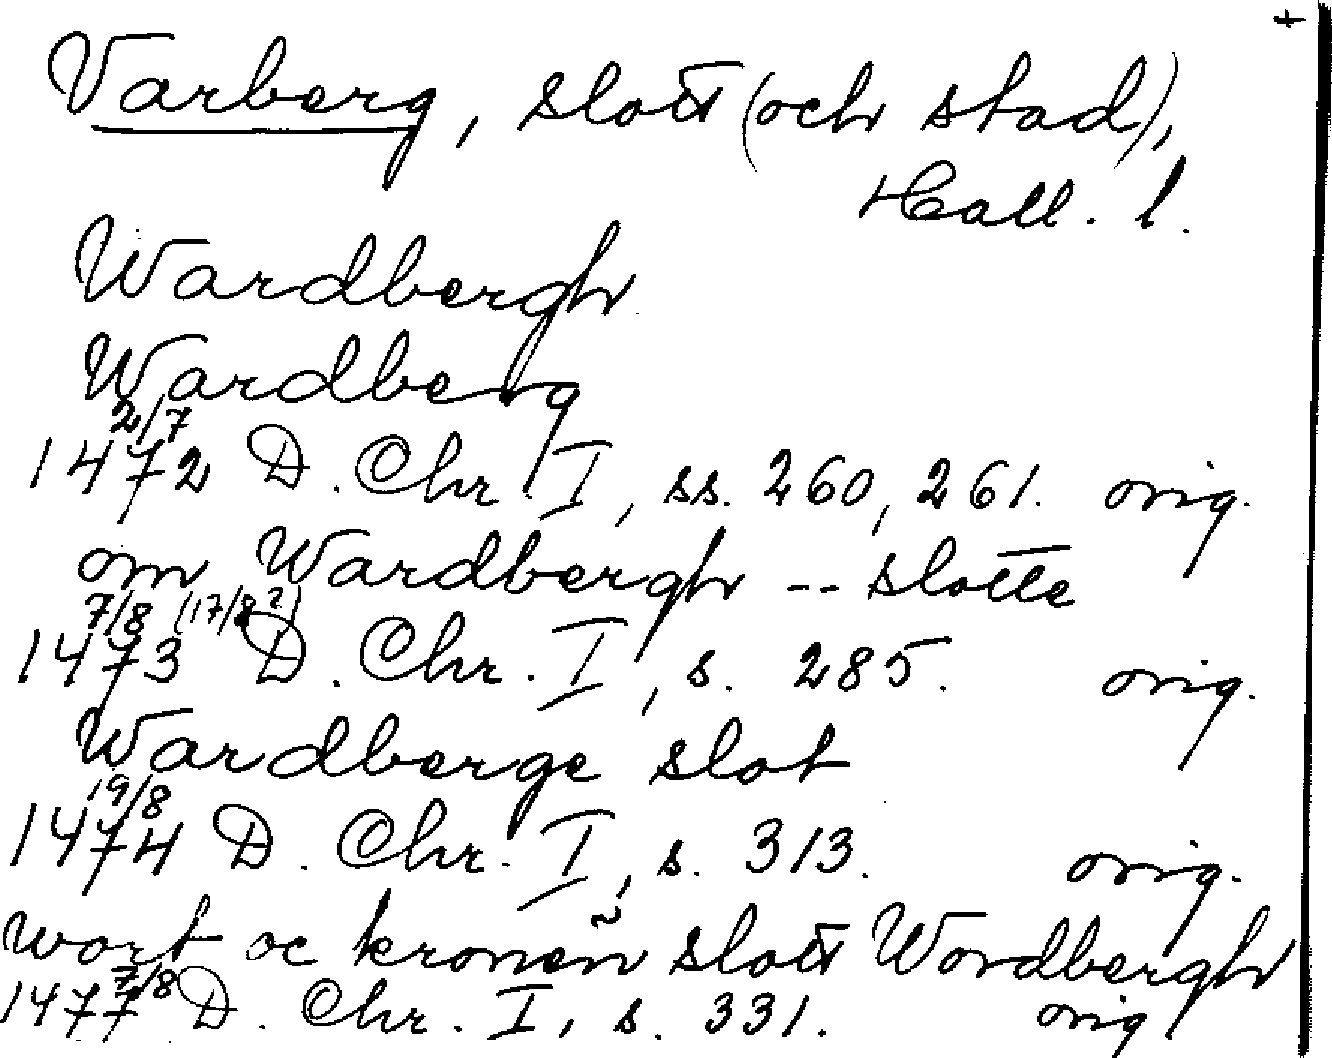 +
Varberg, slott (och stad),
Hall. l.
Wardbergh
Wardberg
2/7
1472 D. Chr. I, ss. 260, 261. orig.
om Wardbergh -- slotte
7/8 (17/8?)
1473 D. Chr. I, s. 285. orig.
Wardberge slot
19/8
1474 D. Chr. I, s. 313. orig.
wort oc kronen̄ slott Wordbergh
7/8
1477 D. Chr. I, s. 331. orig